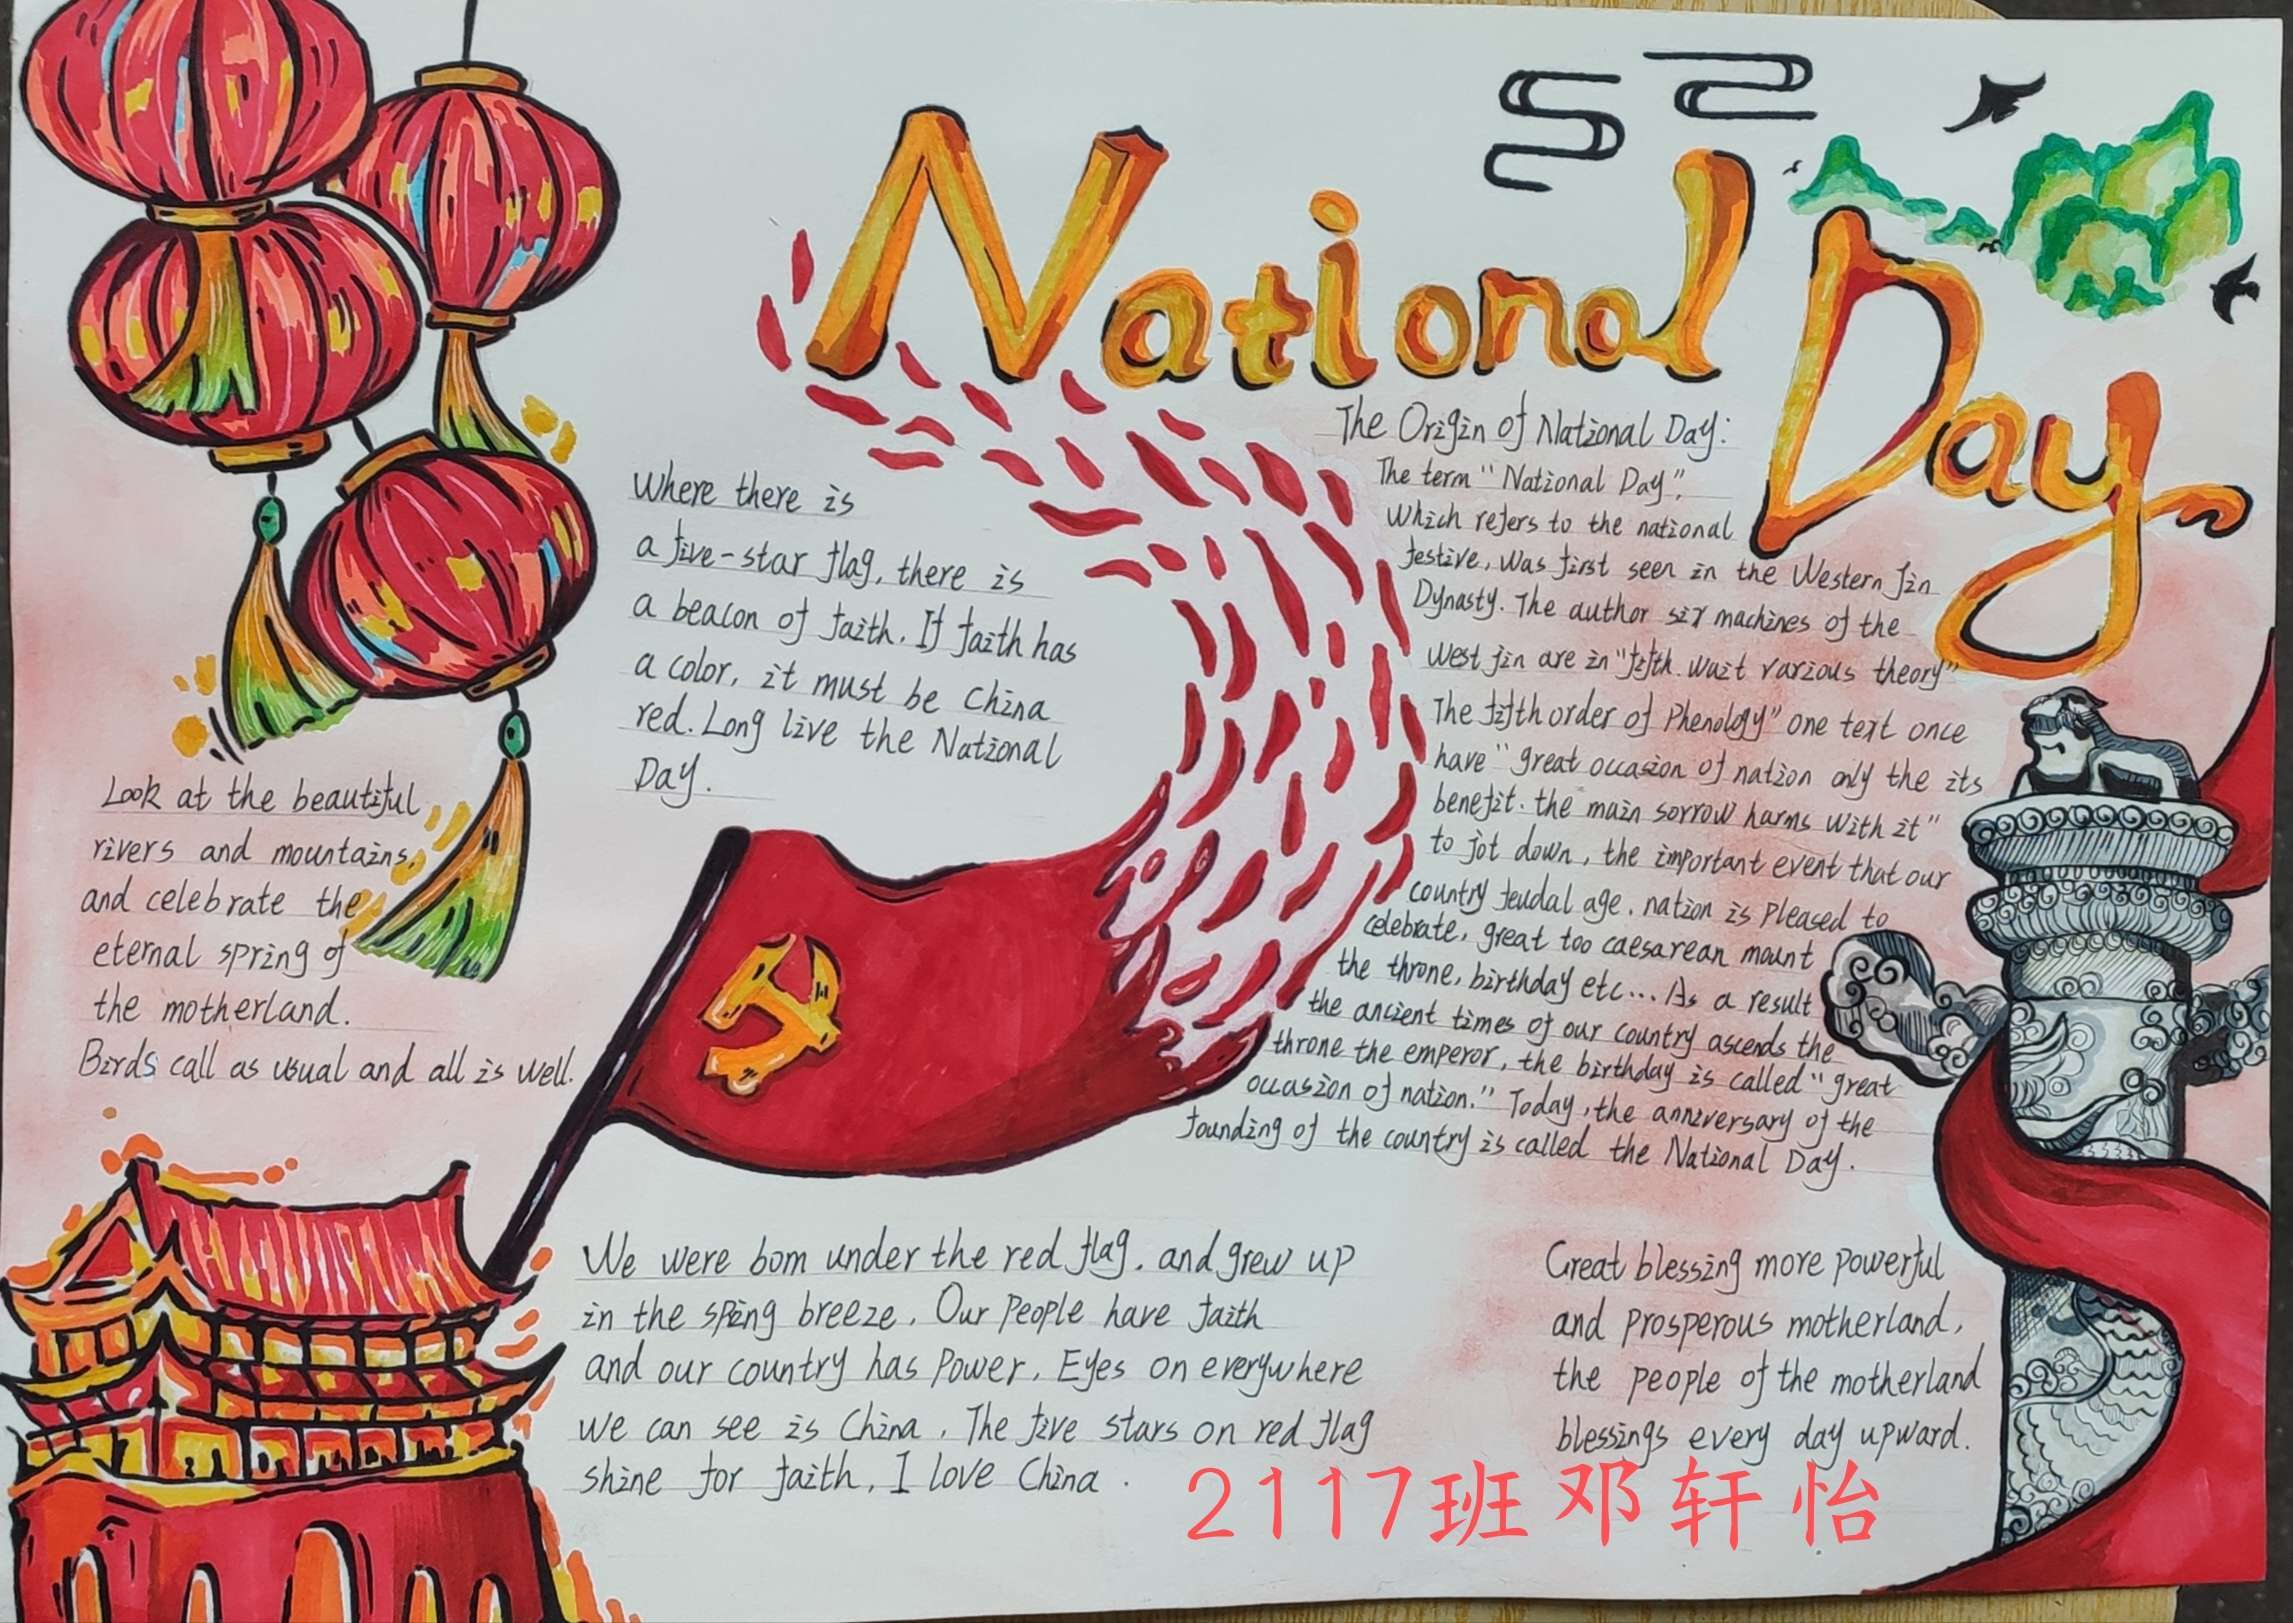 National Day
The Origin of National Day:
The term "National Day",
which refers to the national
festive, was first seen in the Western Jin
Dynasty. The author six machines of the
West Jin are in "fifth wait various theory"
The fifth order of Phenology" one text once
have "great occasion of nation only the its
benefit. the main sorrow harms with it"
to jot down, the important event that our
country feudal age. nation is pleased to
celebrate, great too caesarean mount
the throne, birthday etc... As a result
the ancient times of our country ascends the
throne the emperor, the birthday is called "great
occasion of nation." Today, the anniversary of the
founding of the country is called the National Day.
Where there is
a five-star flag, there is
a beacon of faith. If faith has
a color, it must be China
red. Long live the National
Day.
Look at the beautiful
rivers and mountains,
and celebrate the
eternal spring of
the motherland.
Birds call as usual and all is well.
We were born under the red flag, and grew up
in the spring breeze. Our people have faith
and our country has power. Eyes on everywhere
we can see is China. The five stars on red flag
shine for faith, I love China.
Great blessing more powerful
and prosperous motherland,
the people of the motherland
blessings every day upward.
2117班邓轩怡